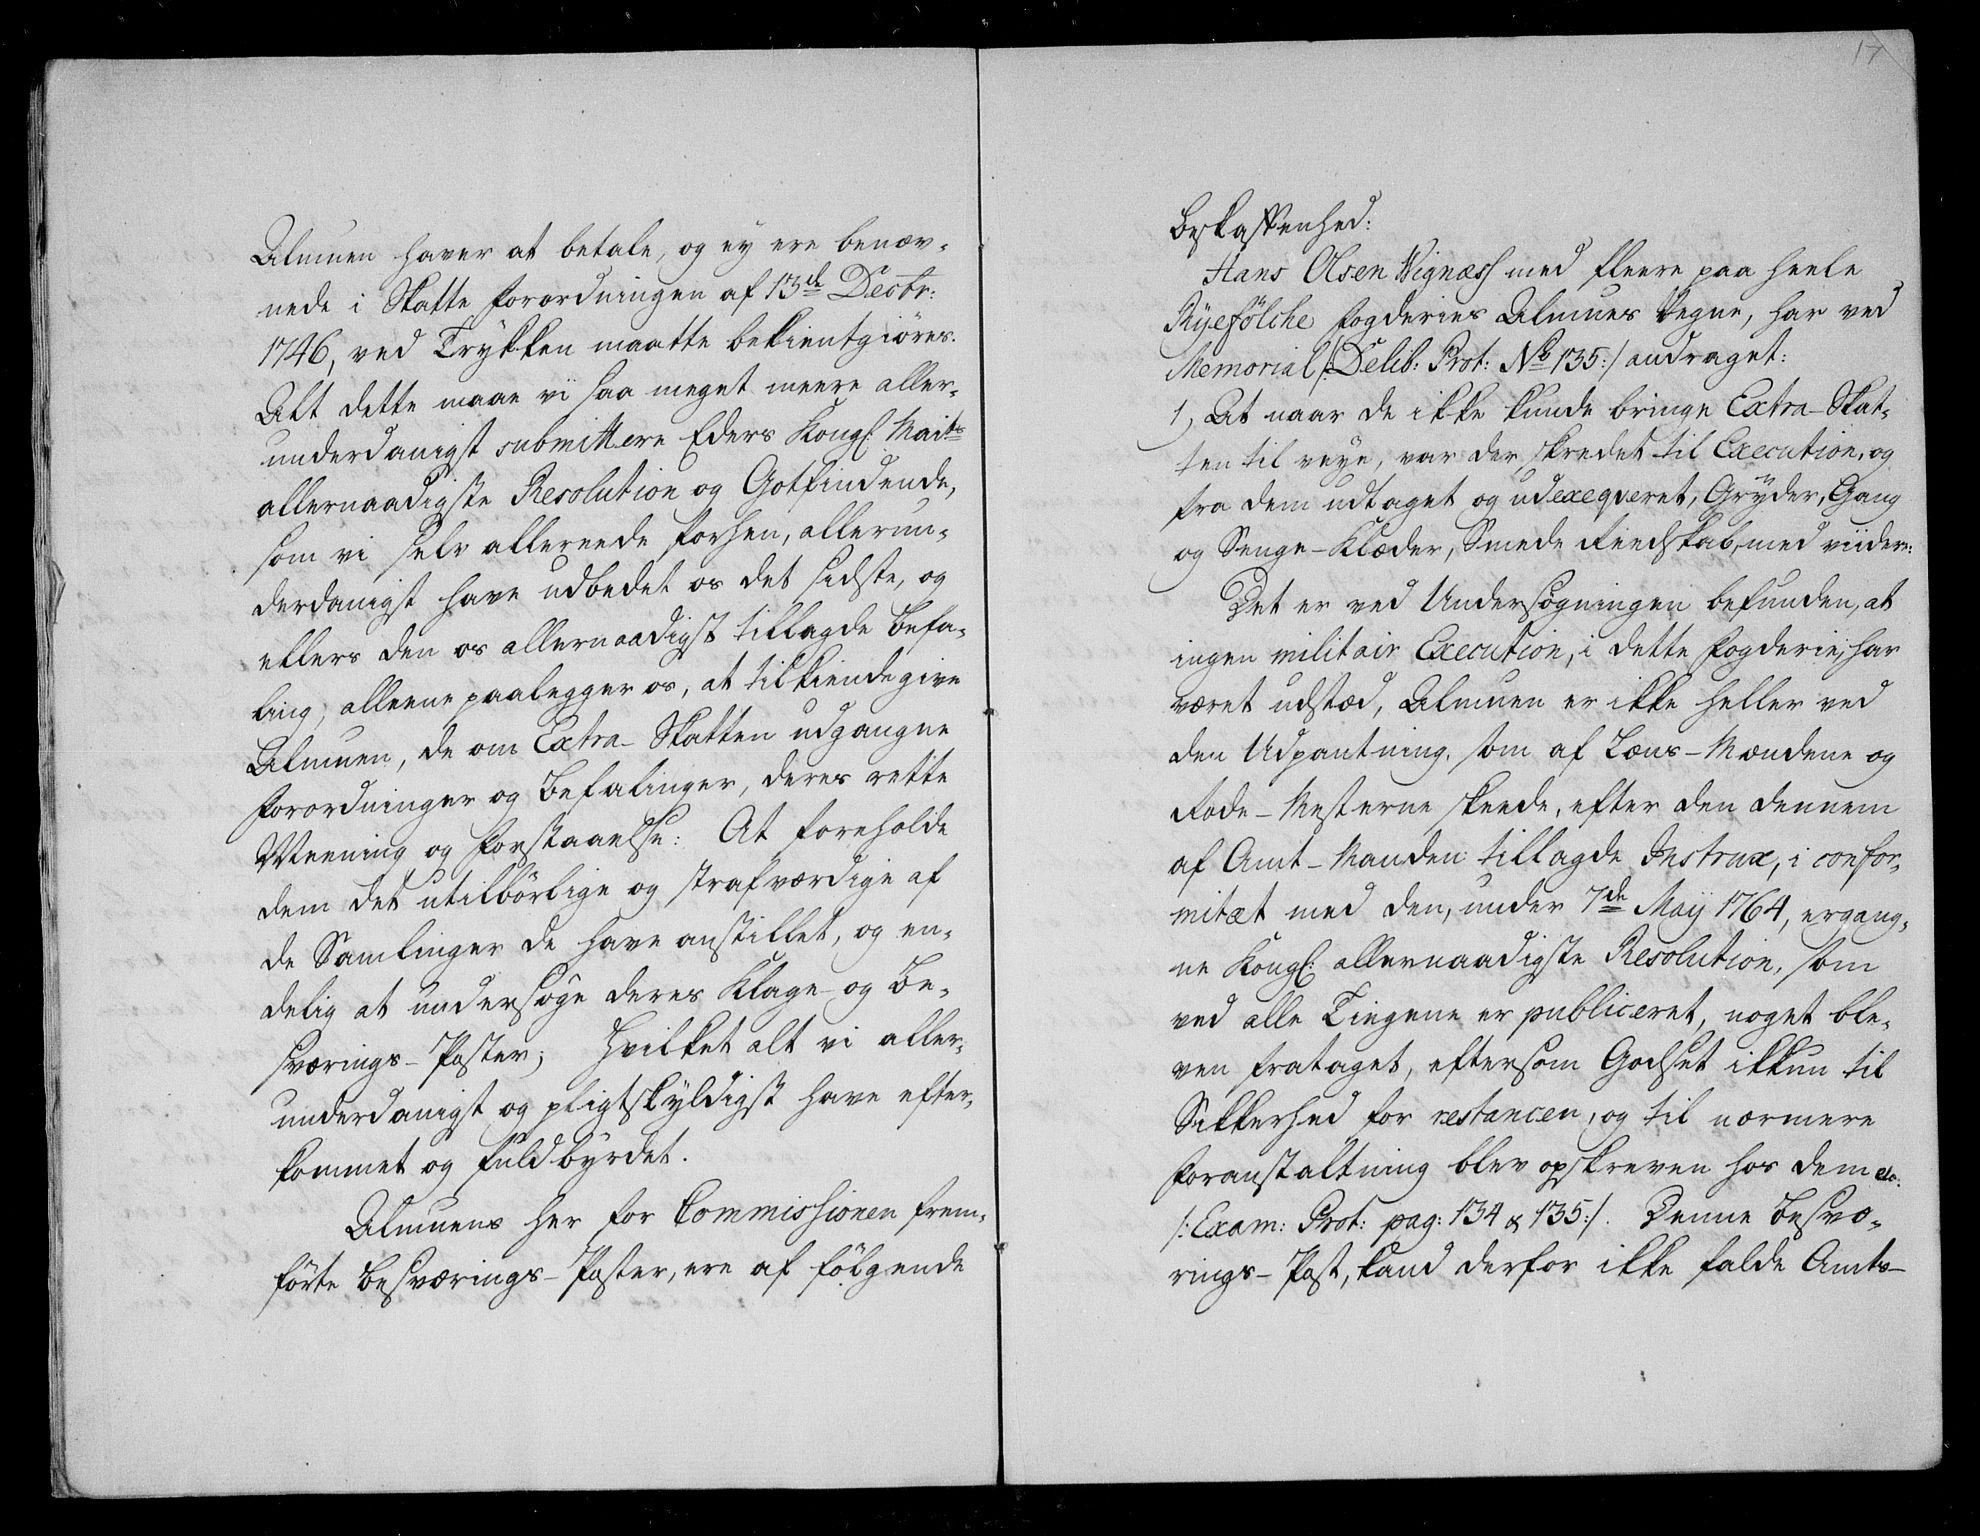 Almuen haver at betale, og ey ere benæv-
nede i Skatte Forordningen af 13de Decbr:
1746, ved Trykken maatte bekientgiöres.
Alt dette maae vi saa meget meere aller-
underdanigst submittere Eders Kongl: Maits
allernaadigste Resolution og Gotfindende,
som vi selv allereede forhen, allerun-
derdanigst have udbedet os det sidste, og
ellers den os allernaadigst tillagde Befa-
ling, alleene paalegger os, at tilkiende give
Almuen, de om Extra-Skatten udgangne
Forordninger og Befalinger, deres rette
Meening og Forstaaelse: At foreholde
dem det utilbörlige og strafværdige af
de Samlinger de have anstillet, og en-
delig at undersöge deres Klage- og Be-
sværings-Poster; Hvilket alt vi aller-
underdanigst og pligtskyldigst have efter-
kommet og fuldbyrdet.
Almuens her for Commissionen frem-
förte Besværings-Poster, ere af fölgende
17
Beskaffenhed:
Hans Olsen Wignæss med fleere paa heele
Ryefölche Fogderies Almues Vegne, har ved
Memorial /:Delib: Prot: No 135:/ andraget:
1, At naar de ikke kunde bringe Extra-Skat-
ten til veye, var der skredet til Execution, og
fra dem udtaget og udexeqveret, Gryder, Gang
og Senge-Klæder, Smede Reedskab, med viidere:
Det er ved Undersögningen befunden, at
ingen militair Execution, i dette Fogderie, har
været udstæd, Almuen er ikke heller ved
den Udpantning, som af Læns-Mændene og
Rode-Mesterne skeede, efter den dennem
af Amt-Manden tillagde Instrux, i confor-
mitæt med den, under 7de Maij 1764, ergang-
ne Kongl: allernaadigste Resolution, som
ved alle Tingene er publiceret, noget ble-
ven frataget, eftersom Godset ikkun til
Sikkerhed for restancen, og til nærmere
Foranstaltning blev opskreven hos dem etc:
/:Exam: Prot: pag: 134 & 135:/. Denne Besvæ-
rings-Post, kand derfor ikke falde Amts-